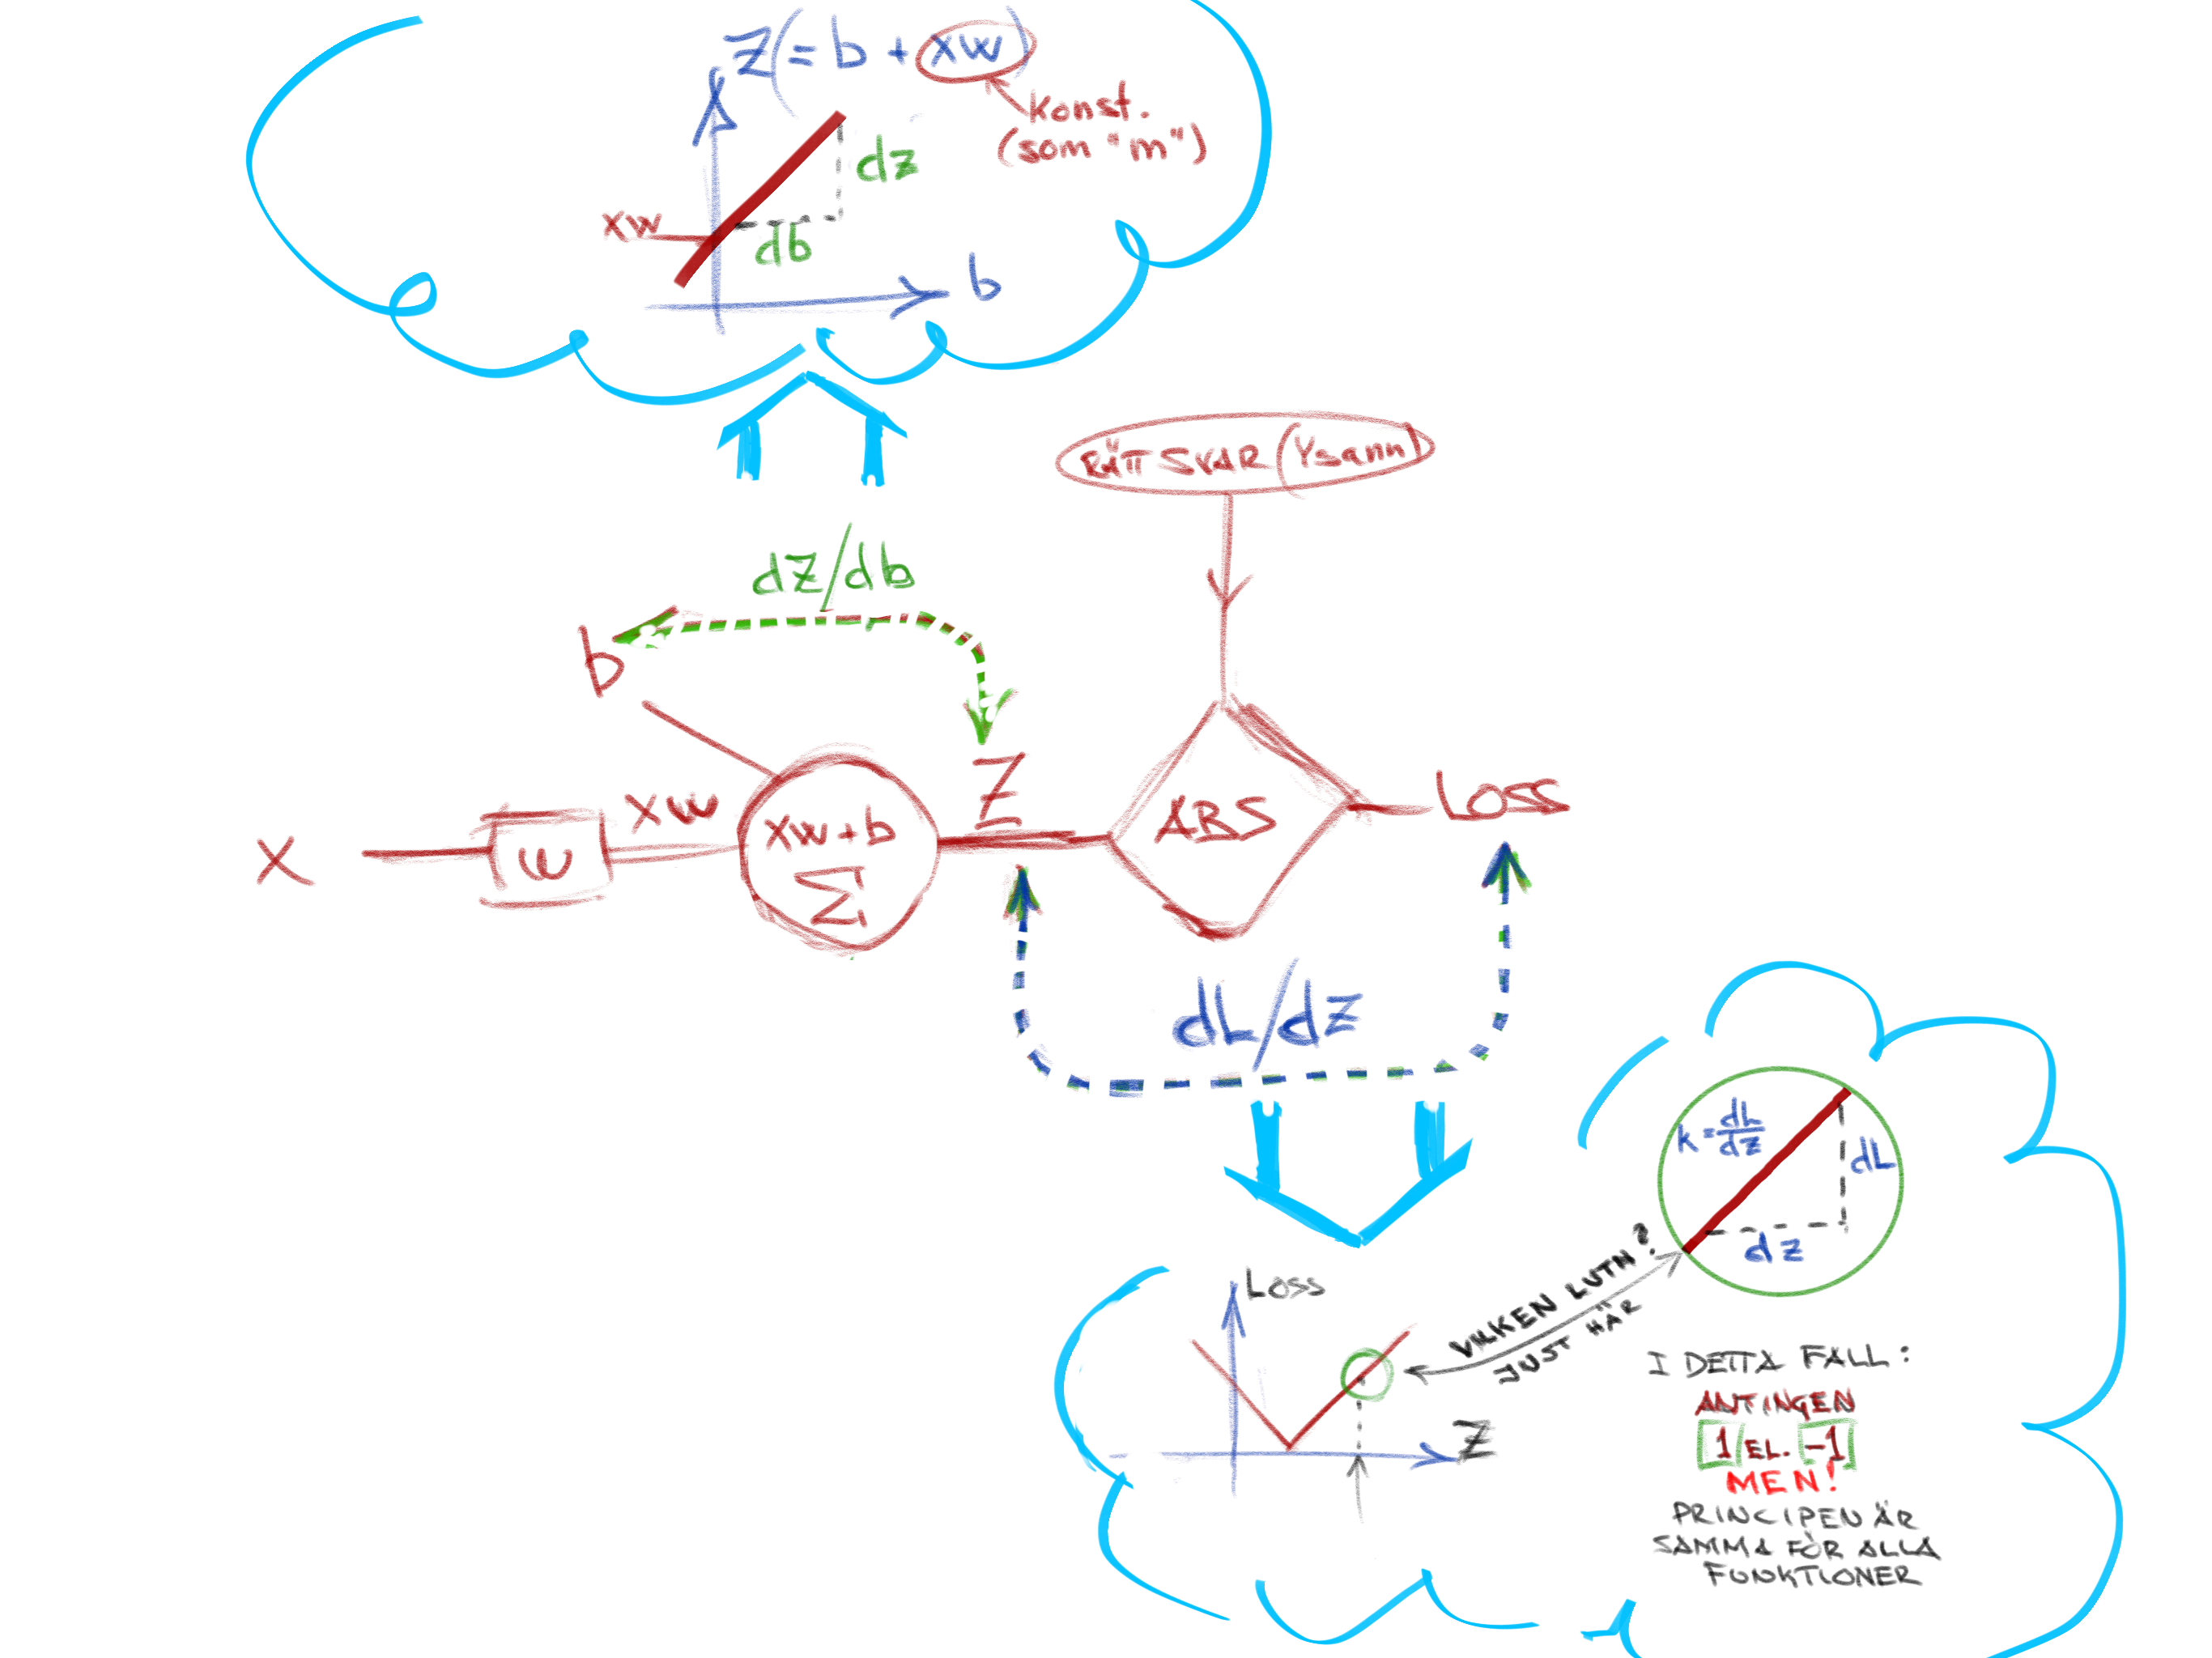 Z(= b + xw)
konst.
(som "m")
dz
xw
db
b
RÄTT SVAR (Ysann)
dz/db
b
Z
x
w
xw
xw+b
Σ
ABS
Loss
dL/dz
k = dL/dz
dL
dz
VILKEN LUTN?
JUST HÄR
Loss
Z
I DETTA FALL:
ANTINGEN
1 EL. -1
MEN!
PRINCIPEN ÄR
SAMMA FÖR ALLA
FUNKTIONER